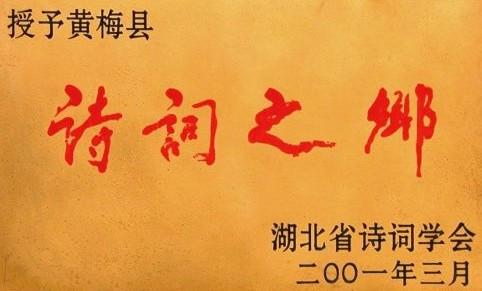 授予黄梅县
诗词之乡
湖北省诗词学会
二〇〇一年三月